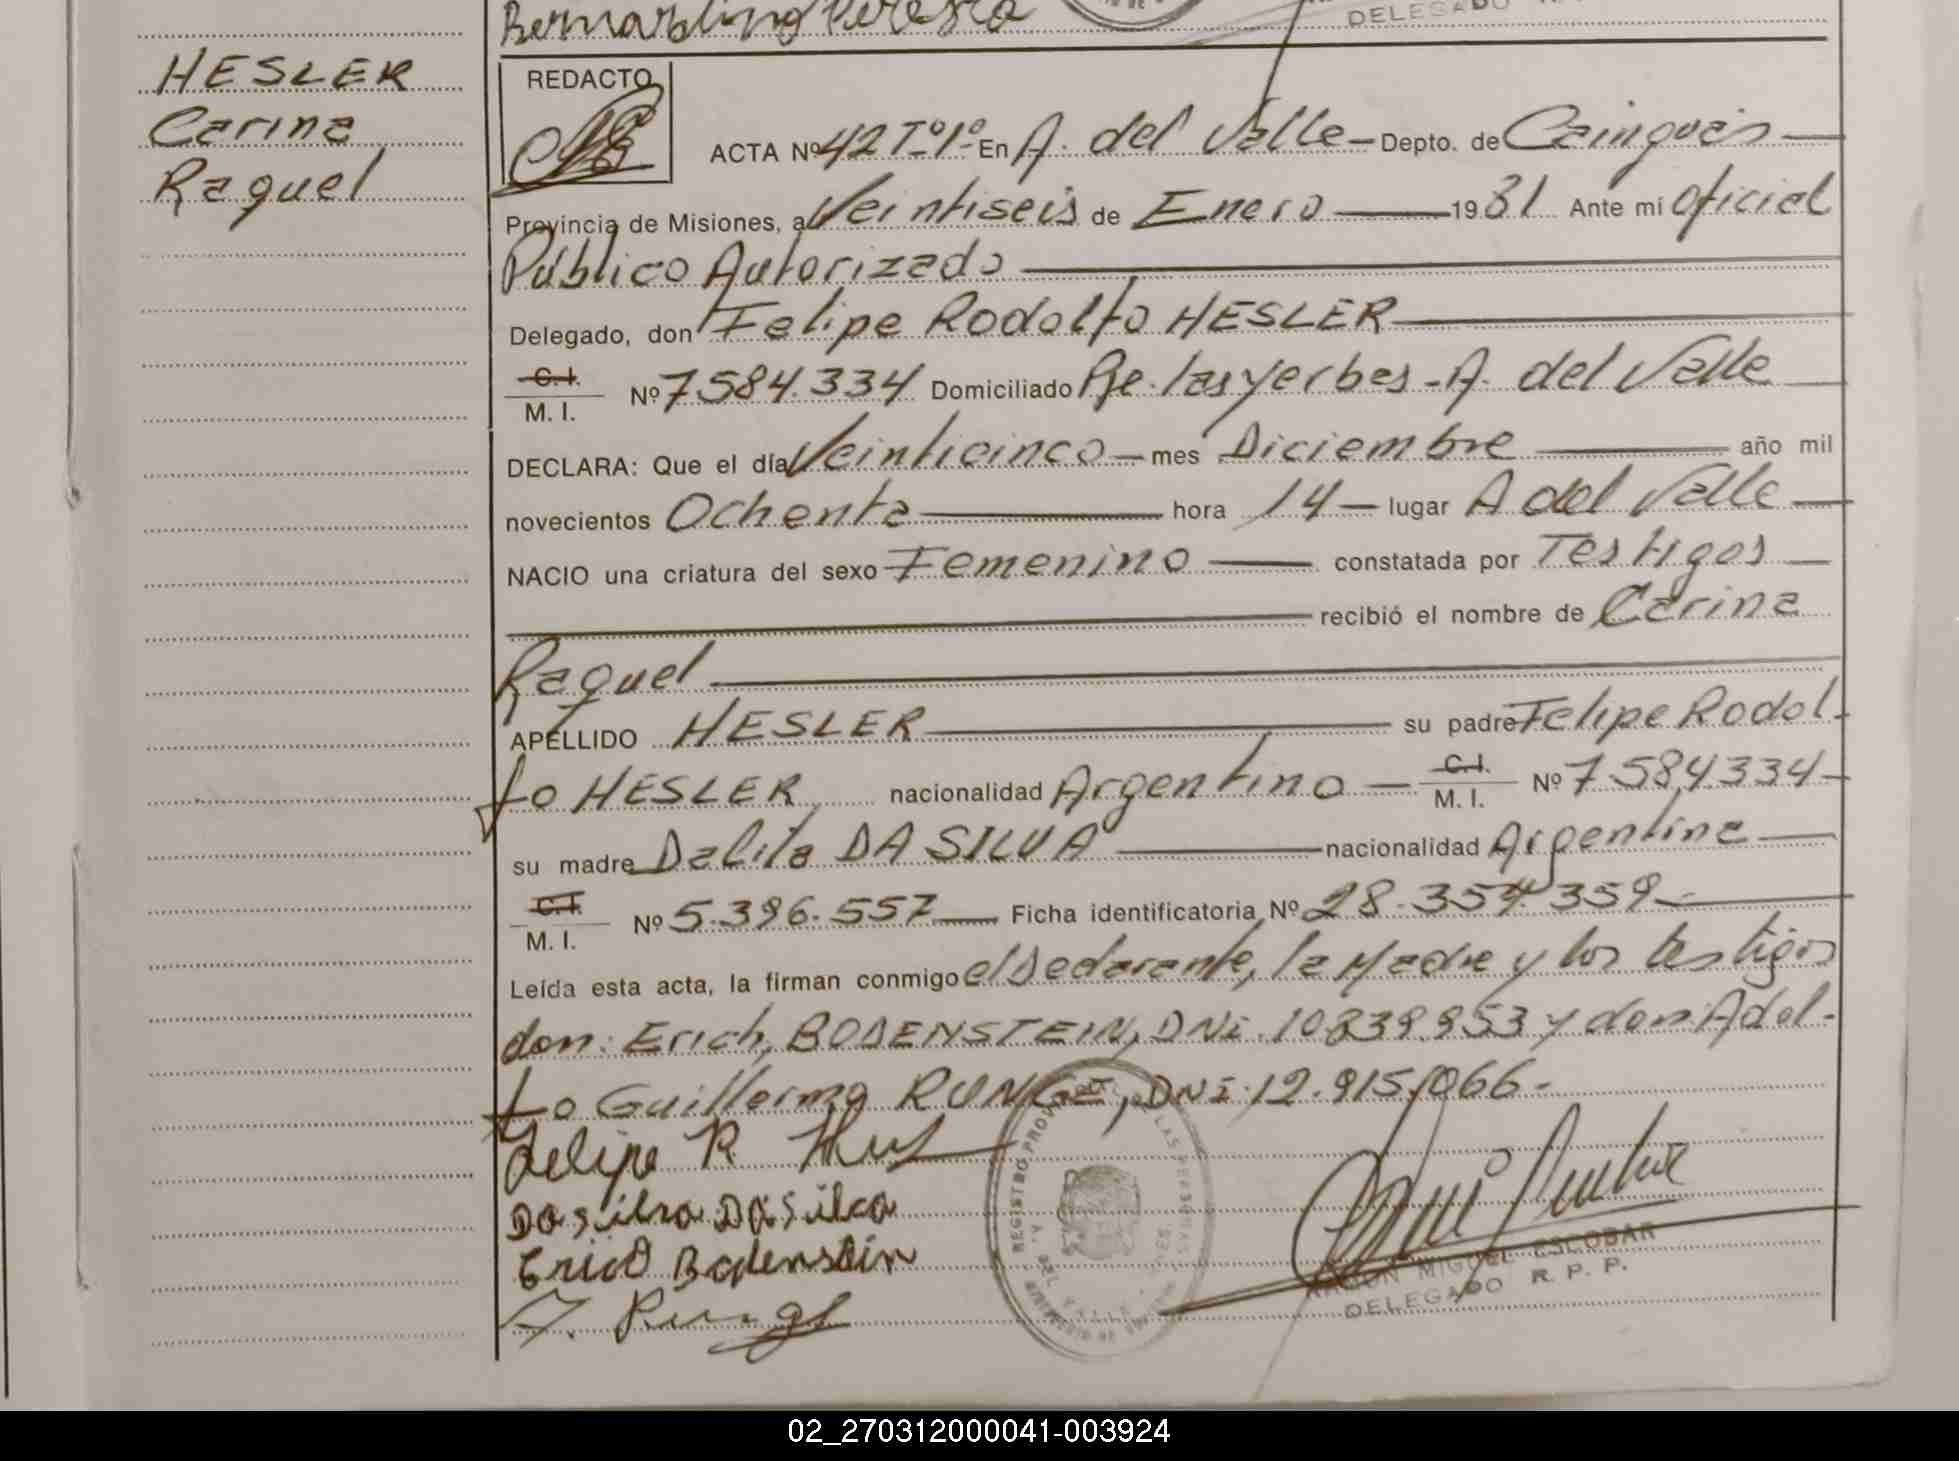 Bernardino Pereyra
DELEGADO
HESLER
Carina
Raquel
REDACTO
ACTA Nº 42 Tº1º- En A. del Valle - Depto. de Cainguás
Provincia de Misiones, a Veintiseis de Enero 1981 Ante mí Oficial
Público Autorizado
Delegado, don Felipe Rodolfo HESLER
C. I.
M. I. Nº 7.584.334 Domiciliado Pje. las yerbas - A. del Valle
DECLARA: Que el día Veinticinco - mes Diciembre año mil
novecientos Ochenta hora 14 - lugar A del Valle
NACIO una criatura del sexo Femenino constatada por Testigos
recibió el nombre de Carina
Raquel
APELLIDO HESLER su padre Felipe Rodol-
fo HESLER nacionalidad Argentino - C. I. M. I. Nº 7.584.334-
su madre Dalila DA SILVA nacionalidad Argentina
C. I.
M. I. Nº 5.396.557 Ficha identificatoria Nº 28.354.359-
Leída esta acta, la firman conmigo el Declarante, la Madre y los testigos
don: Erich, BODENSTEIN, DNi. 10.839.953 y don: Adol-
fo Guillermo RUNGE, DNi. 12.915.066-
Felipe R.
Dasilva Dasilva
Erico Bodenstein
A. Runge
REGISTRO PROV. DE LAS PERSONAS
A. DEL VALLE - MNES.
RAMON MIGUEL ESCOBAR
DELEGADO R. P. P.
02_270312000041-003924